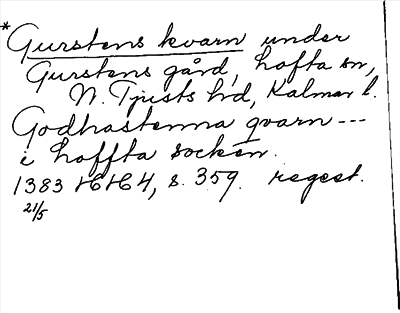 *Gurstens kvarn under
Gurstens gård, Lofta sn,
N. Tjusts hd, Kalmar l.
Godhastenna qvarn ---
i Loffta socken.
1383 HH 4, s. 359. regest.
21/5